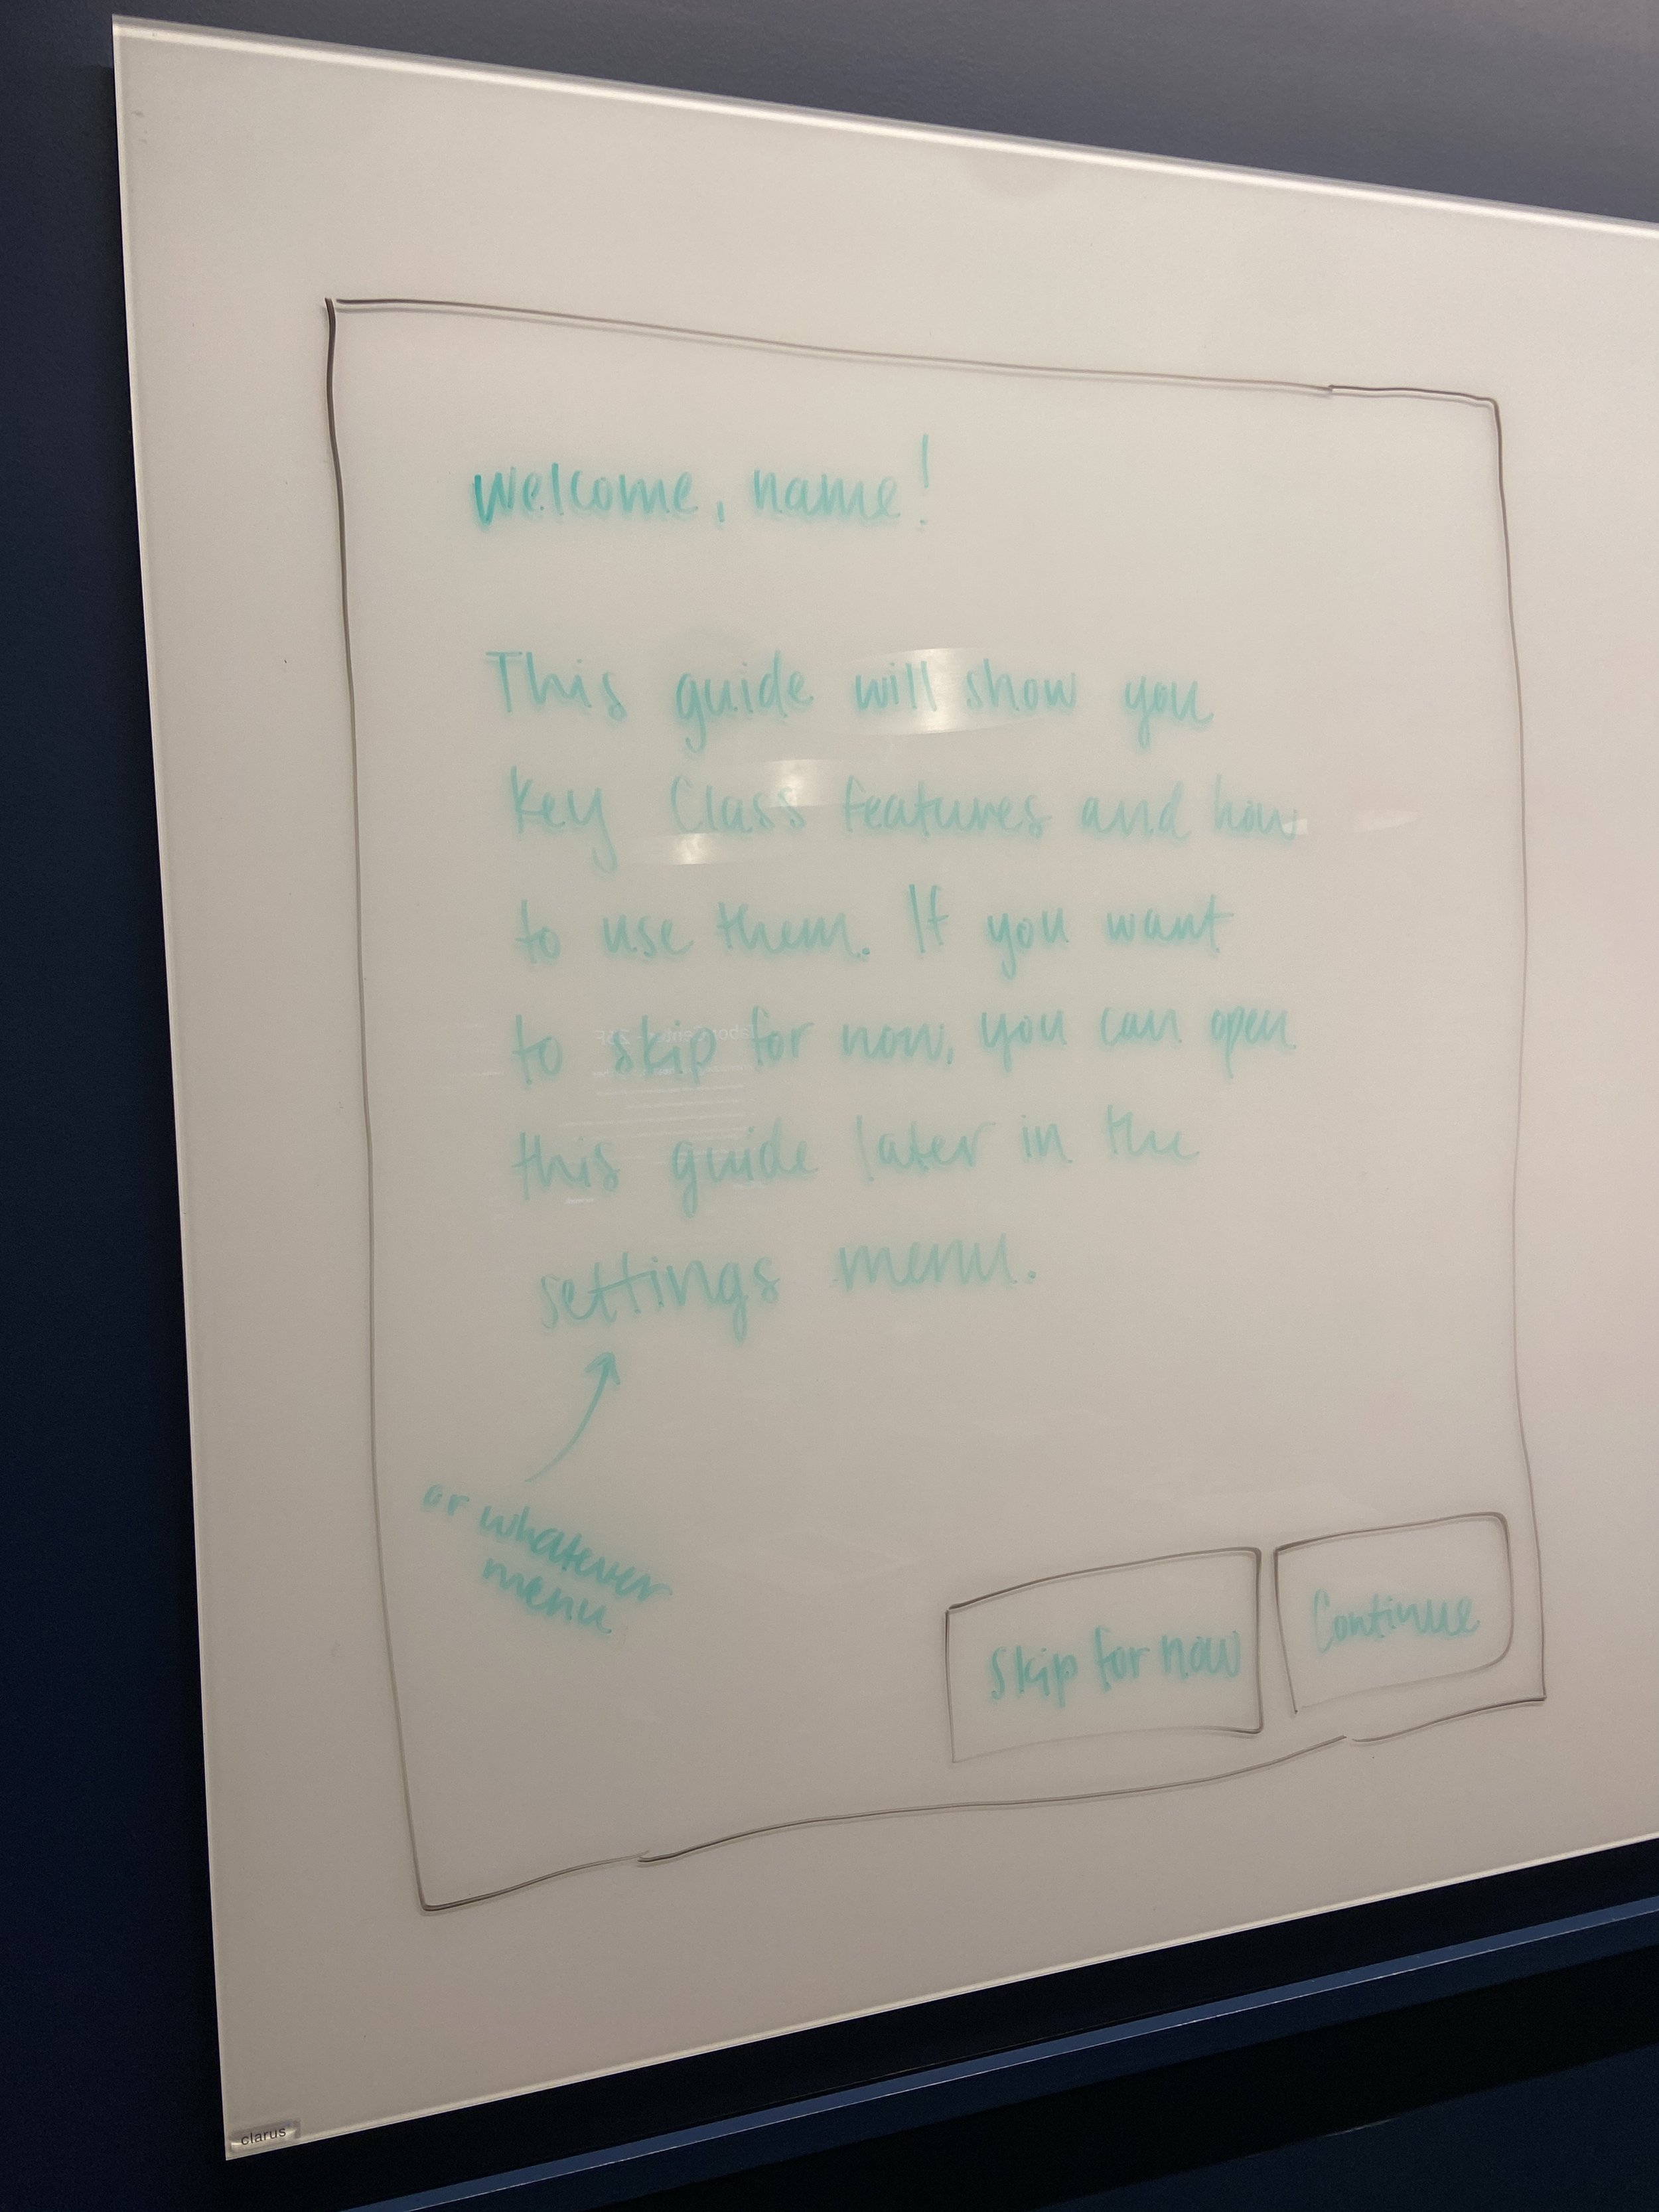 Welcome, name!
This guide will show you
key Class features and how
to use them. If you want
to skip for now, you can open
this guide later in the
settings menu.
or whatever
menu
Skip for now
Continue
clarus